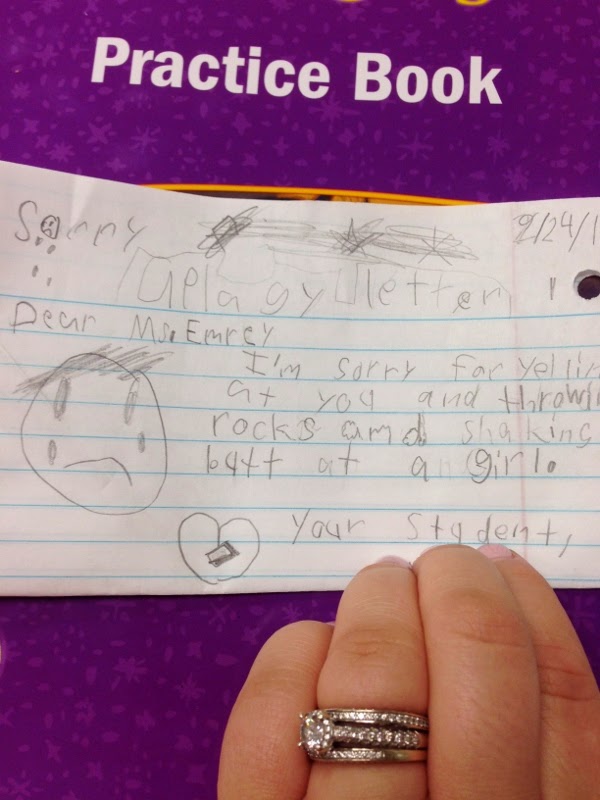 Practice Book
Sorry 2/24/1
Uplagy letter
Dear Ms. Emrey
I'm sorry for yellin
at you and throwi
rocks amd shaking
butt at a girl.
Your student,